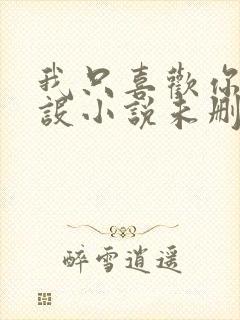 我只喜歡你
設小說未刪
醉雪逍遥